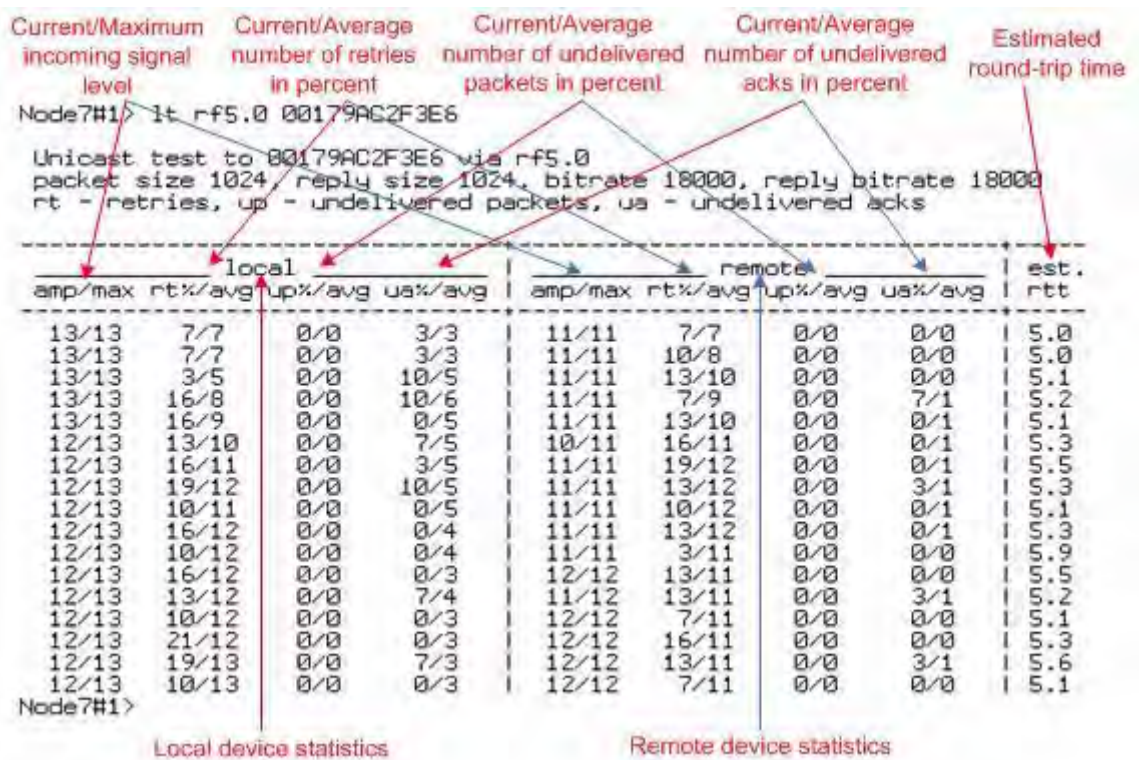 Current/Maximum incoming signal level
Current/Average number of retries in percent
Current/Average number of undelivered packets in percent
Current/Average number of undelivered acks in percent
Estimated round-trip time
Node7#1> lt rf5.0 00179AC2F3E6
Unicast test to 00179AC2F3E6 via rf5.0
packet size 1024, reply size 1024, bitrate 18000, reply bitrate 18000
rt - retries, up - undelivered packets, ua - undelivered acks
local | remote | est.
amp/max rt%/avg up%/avg ua%/avg | amp/max rt%/avg up%/avg ua%/avg | rtt
13/13 7/7 0/0 3/3 | 11/11 7/7 0/0 0/0 | 5.0
13/13 7/7 0/0 3/3 | 11/11 10/8 0/0 0/0 | 5.0
13/13 3/5 0/0 10/5 | 11/11 13/10 0/0 0/0 | 5.1
13/13 16/8 0/0 10/6 | 11/11 7/9 0/0 7/1 | 5.2
13/13 16/9 0/0 0/5 | 11/11 13/10 0/0 0/1 | 5.1
12/13 13/10 0/0 7/5 | 10/11 16/11 0/0 0/1 | 5.3
12/13 16/11 0/0 3/5 | 11/11 19/12 0/0 0/1 | 5.5
12/13 19/12 0/0 10/5 | 11/11 13/12 0/0 3/1 | 5.3
12/13 10/11 0/0 0/5 | 11/11 10/12 0/0 0/1 | 5.1
12/13 16/12 0/0 0/4 | 11/11 13/12 0/0 0/1 | 5.3
12/13 10/12 0/0 0/4 | 11/11 3/11 0/0 0/0 | 5.9
12/13 16/12 0/0 0/3 | 12/12 13/11 0/0 0/0 | 5.5
12/13 13/12 0/0 7/4 | 11/12 13/11 0/0 3/1 | 5.2
12/13 10/12 0/0 0/3 | 12/12 7/11 0/0 0/0 | 5.1
12/13 21/12 0/0 0/3 | 12/12 16/11 0/0 0/0 | 5.3
12/13 19/13 0/0 7/3 | 12/12 13/11 0/0 3/1 | 5.6
12/13 10/13 0/0 0/3 | 12/12 7/11 0/0 0/0 | 5.1
Node7#1>
Local device statistics
Remote device statistics